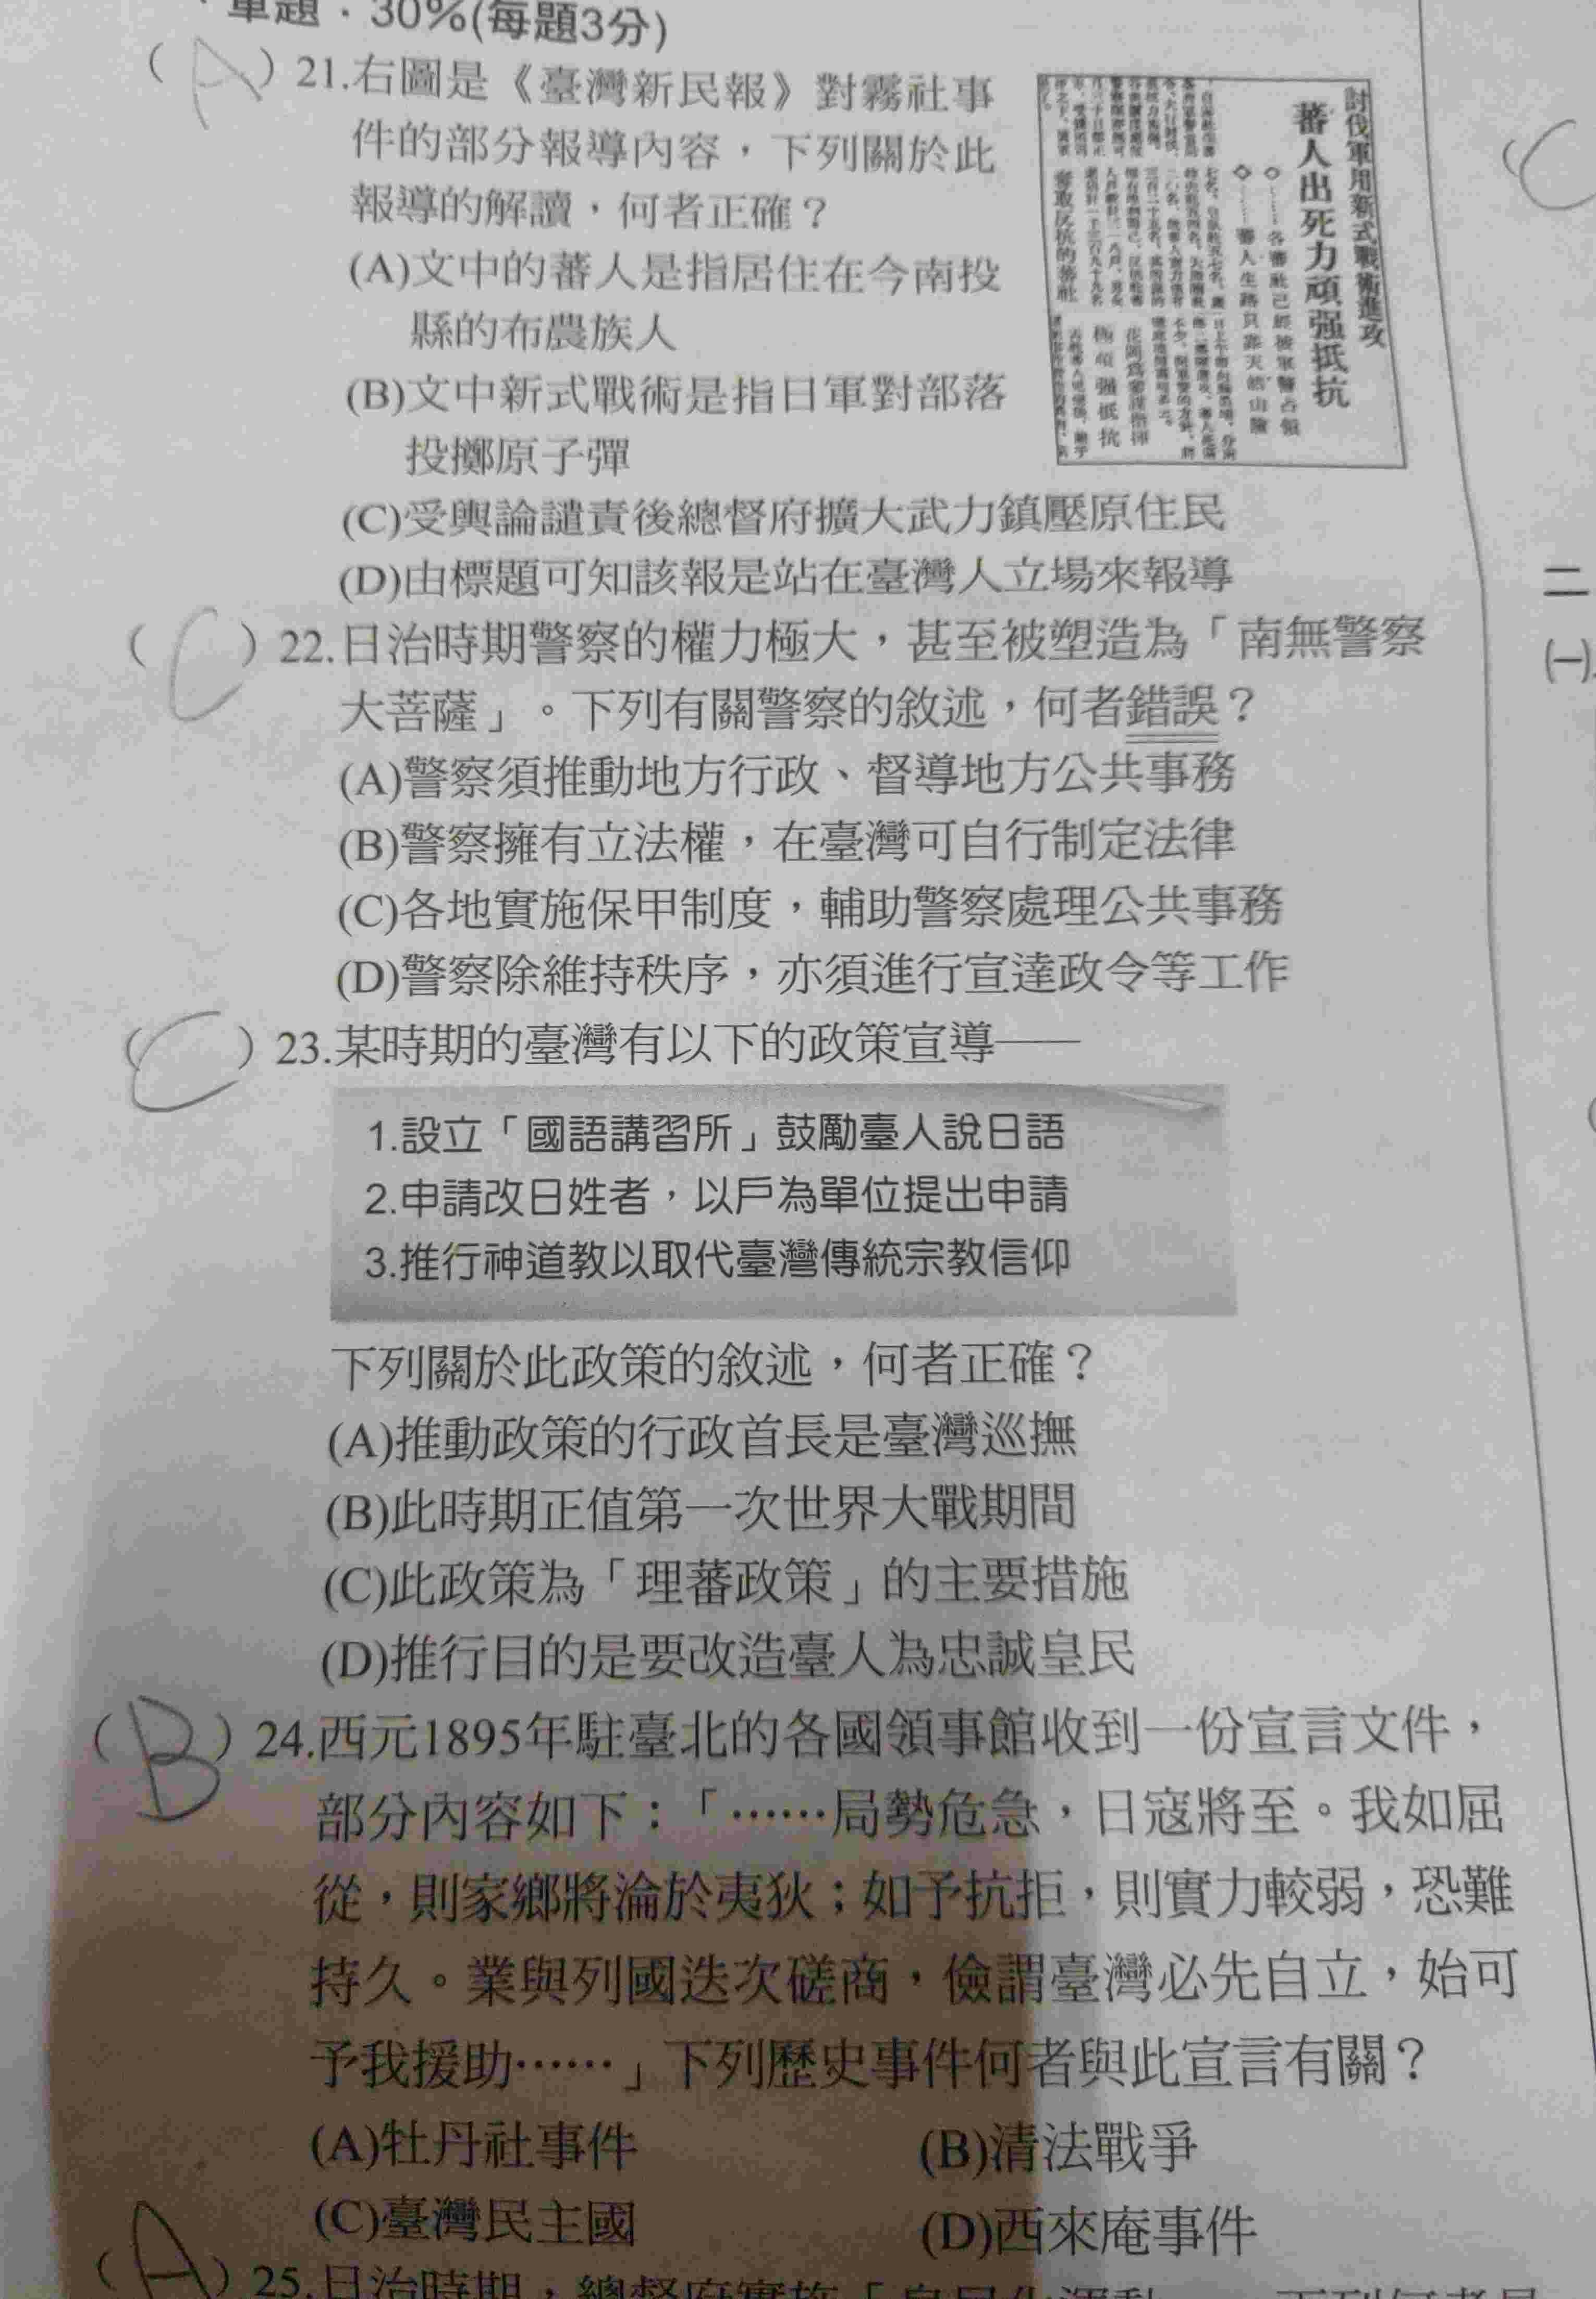 單題．30%(每題3分)
(A) 21.右圖是《臺灣新民報》對霧社事
件的部分報導內容，下列關於此
報導的解讀，何者正確？
(A)文中的蕃人是指居住在今南投
縣的布農族人
(B)文中新式戰術是指日軍對部落
投擲原子彈
(C)受輿論譴責後總督府擴大武力鎮壓原住民
(D)由標題可知該報是站在臺灣人立場來報導
討伐軍用新式戰術進攻
蕃人出死力頑强抵抗
◇……各蕃社已經被軍警占領
◇……蕃人生路只靠天然山險
奪取反抗的蕃社
極頑强抵抗
(C) 22.日治時期警察的權力極大，甚至被塑造為「南無警察
大菩薩」。下列有關警察的敘述，何者錯誤？
(A)警察須推動地方行政、督導地方公共事務
(B)警察擁有立法權，在臺灣可自行制定法律
(C)各地實施保甲制度，輔助警察處理公共事務
(D)警察除維持秩序，亦須進行宣達政令等工作
(C) 23.某時期的臺灣有以下的政策宣導——
1.設立「國語講習所」鼓勵臺人說日語
2.申請改日姓者，以戶為單位提出申請
3.推行神道教以取代臺灣傳統宗教信仰
下列關於此政策的敘述，何者正確？
(A)推動政策的行政首長是臺灣巡撫
(B)此時期正值第一次世界大戰期間
(C)此政策為「理蕃政策」的主要措施
(D)推行目的是要改造臺人為忠誠皇民
(B) 24.西元1895年駐臺北的各國領事館收到一份宣言文件，
部分內容如下：「……局勢危急，日寇將至。我如屈
從，則家鄉將淪於夷狄；如予抗拒，則實力較弱，恐難
持久。業與列國迭次磋商，儉謂臺灣必先自立，始可
予我援助……」下列歷史事件何者與此宣言有關？
(A)牡丹社事件 (B)清法戰爭
(C)臺灣民主國 (D)西來庵事件
(A) 25.日治時期，總督府實施「皇民化運動」，下列何者是
C
二
(一)